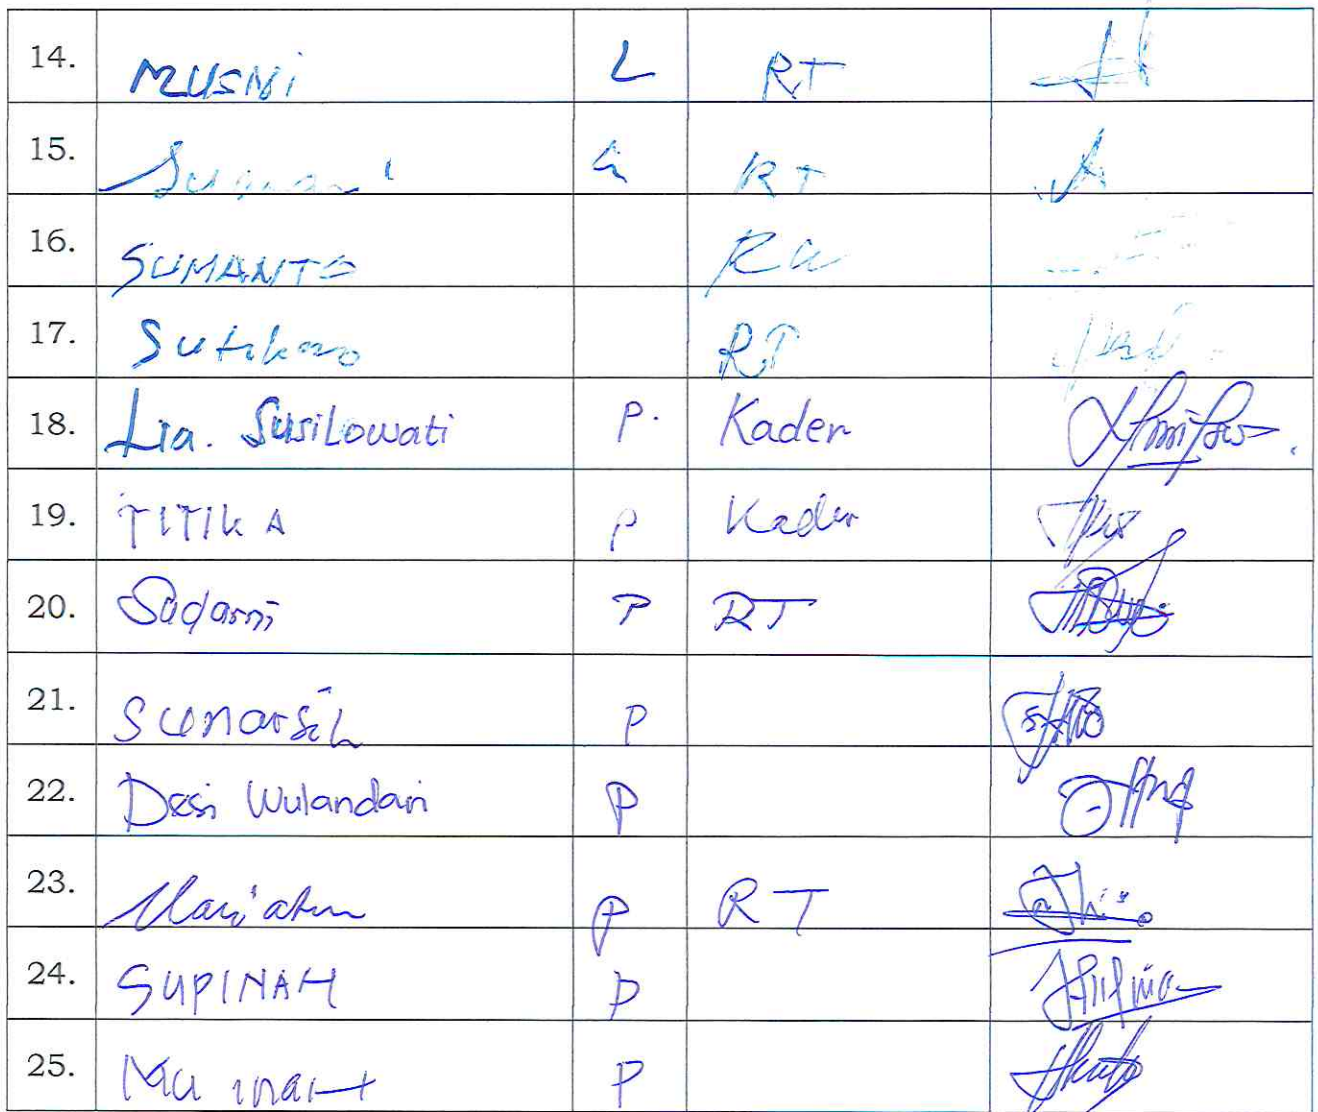 14. MUSNI L RT
15. RT
16. SUMANTO
17. Sutikno RT
18. Lia. Susilowati P. Kader
19. TITIK A P Kader
20. Sadarni P RT
21. Sunarsih P
22. Desi Wulandari P
23. Mari'atun P RT
24. SUPINAH P
25. P